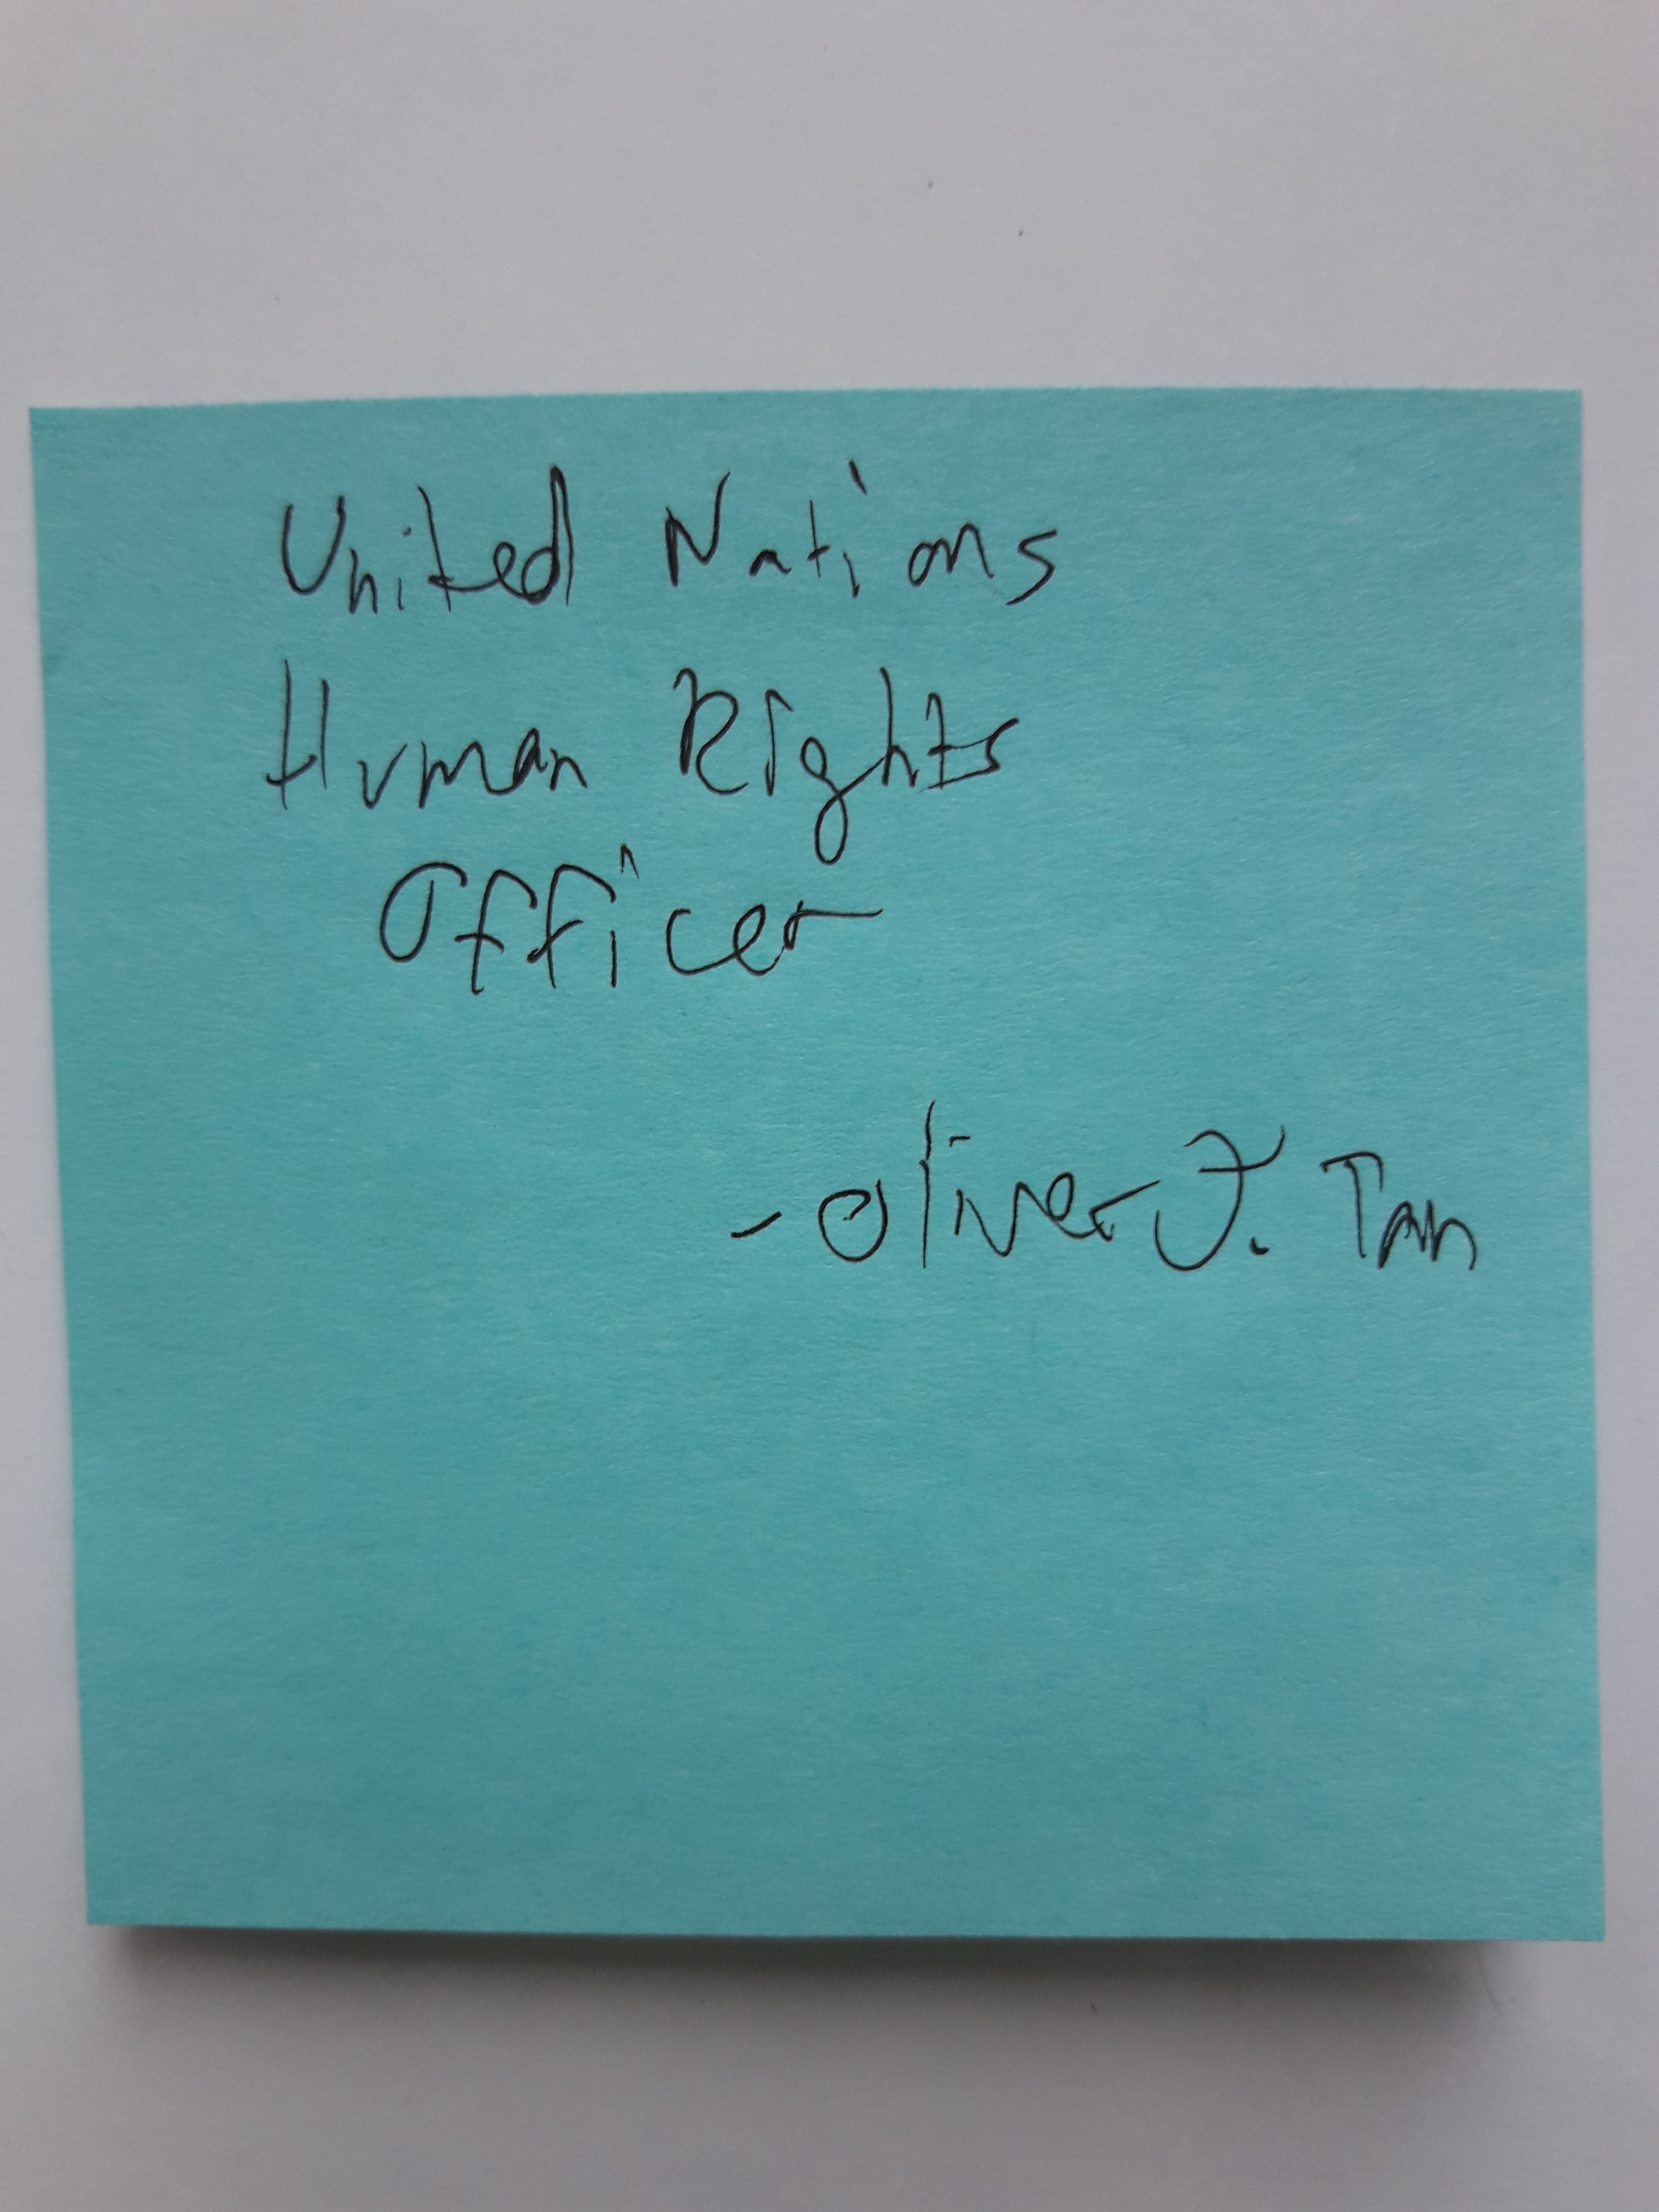 United Nations
Human Rights
Officer
- Oliver J. Tan